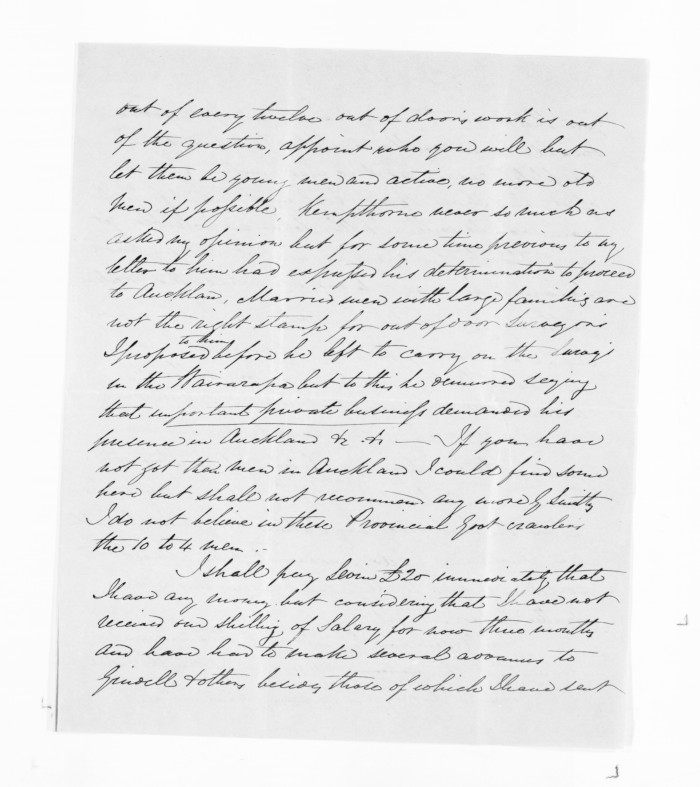 out of every twelve out of doors work is out
of the question, appoint who you will but
let them be young men and active, no more old
men if possible, Kempthorne never so much as
asked my opinion but for some time previous to my
letter to him had expressed his determination to proceed
to Aucklan, Married men with large families are
not the right stamp for out of door Surveyors
I proposed to him before he left to carry on the Surveys
in the Wairarapa but to this he demurred saying
that important private business demanded his
presence in Auckland &c &c — If you have
not got the men in Auckland I could find some
here but shall not recommen any more Smiths
I do not believe in these Provincial Govt crawlers
the 10 to 4 men ..
I shall pay Levin £20 immediately that
I have any money but considering that I have not
received one shilling of Salary for now three months
and have had to make several advances to
Grindell & others besides those of which I have sent